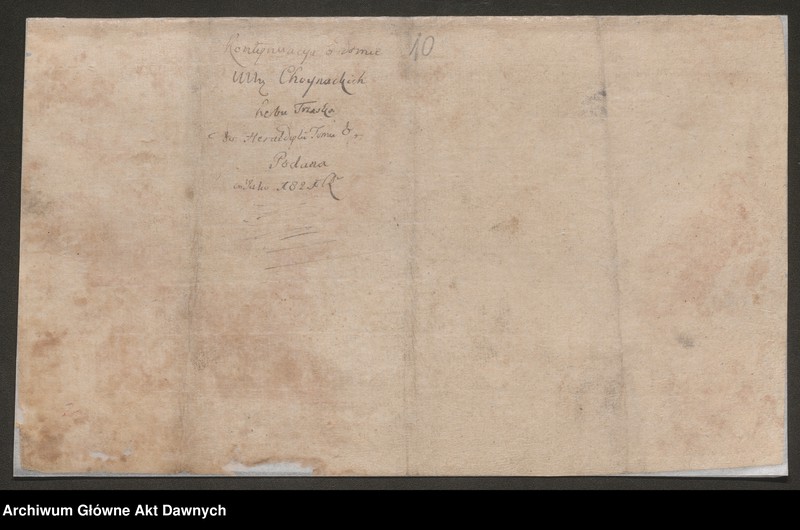 Kontynuacya o Domie 10
Choynackich
herbu Trzaska
do Heraldyki Tomu
Podana
1821 R
Archiwum Główne Akt Dawnych